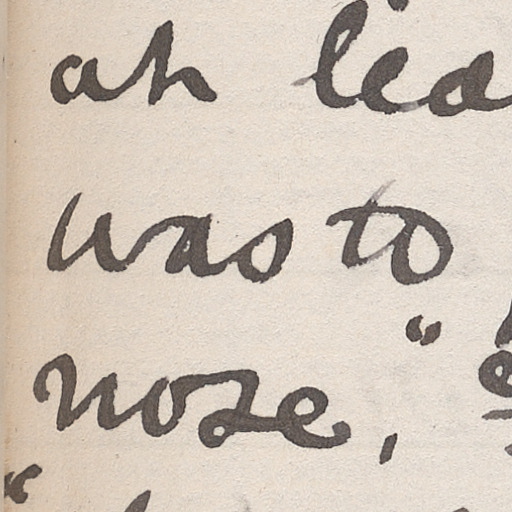 at lea
was to
nose,"
"